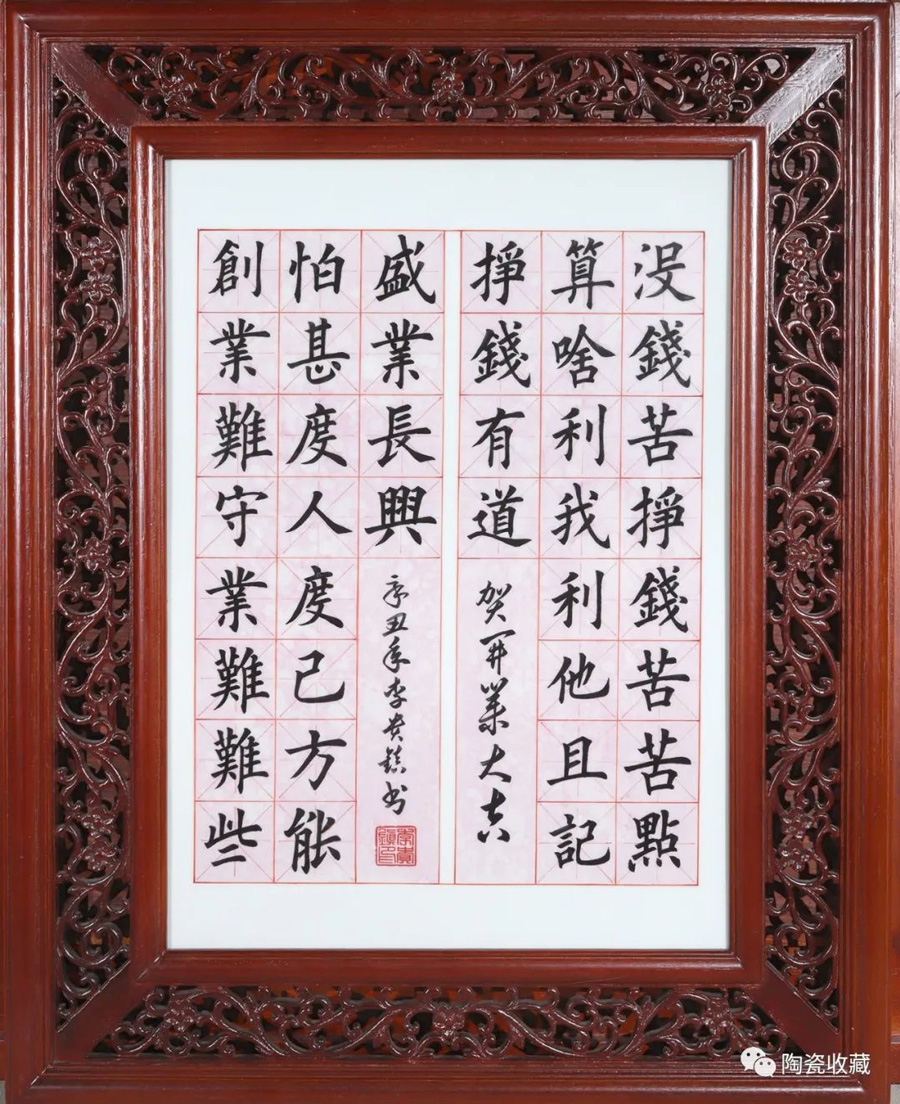 没錢苦掙錢苦苦點
算啥利我利他且記
掙錢有道
贺開業大吉
創業難守業難難些
怕甚度人度己方能
盛業長興
辛丑年李贵镇书
李貴鎮印
陶瓷收藏